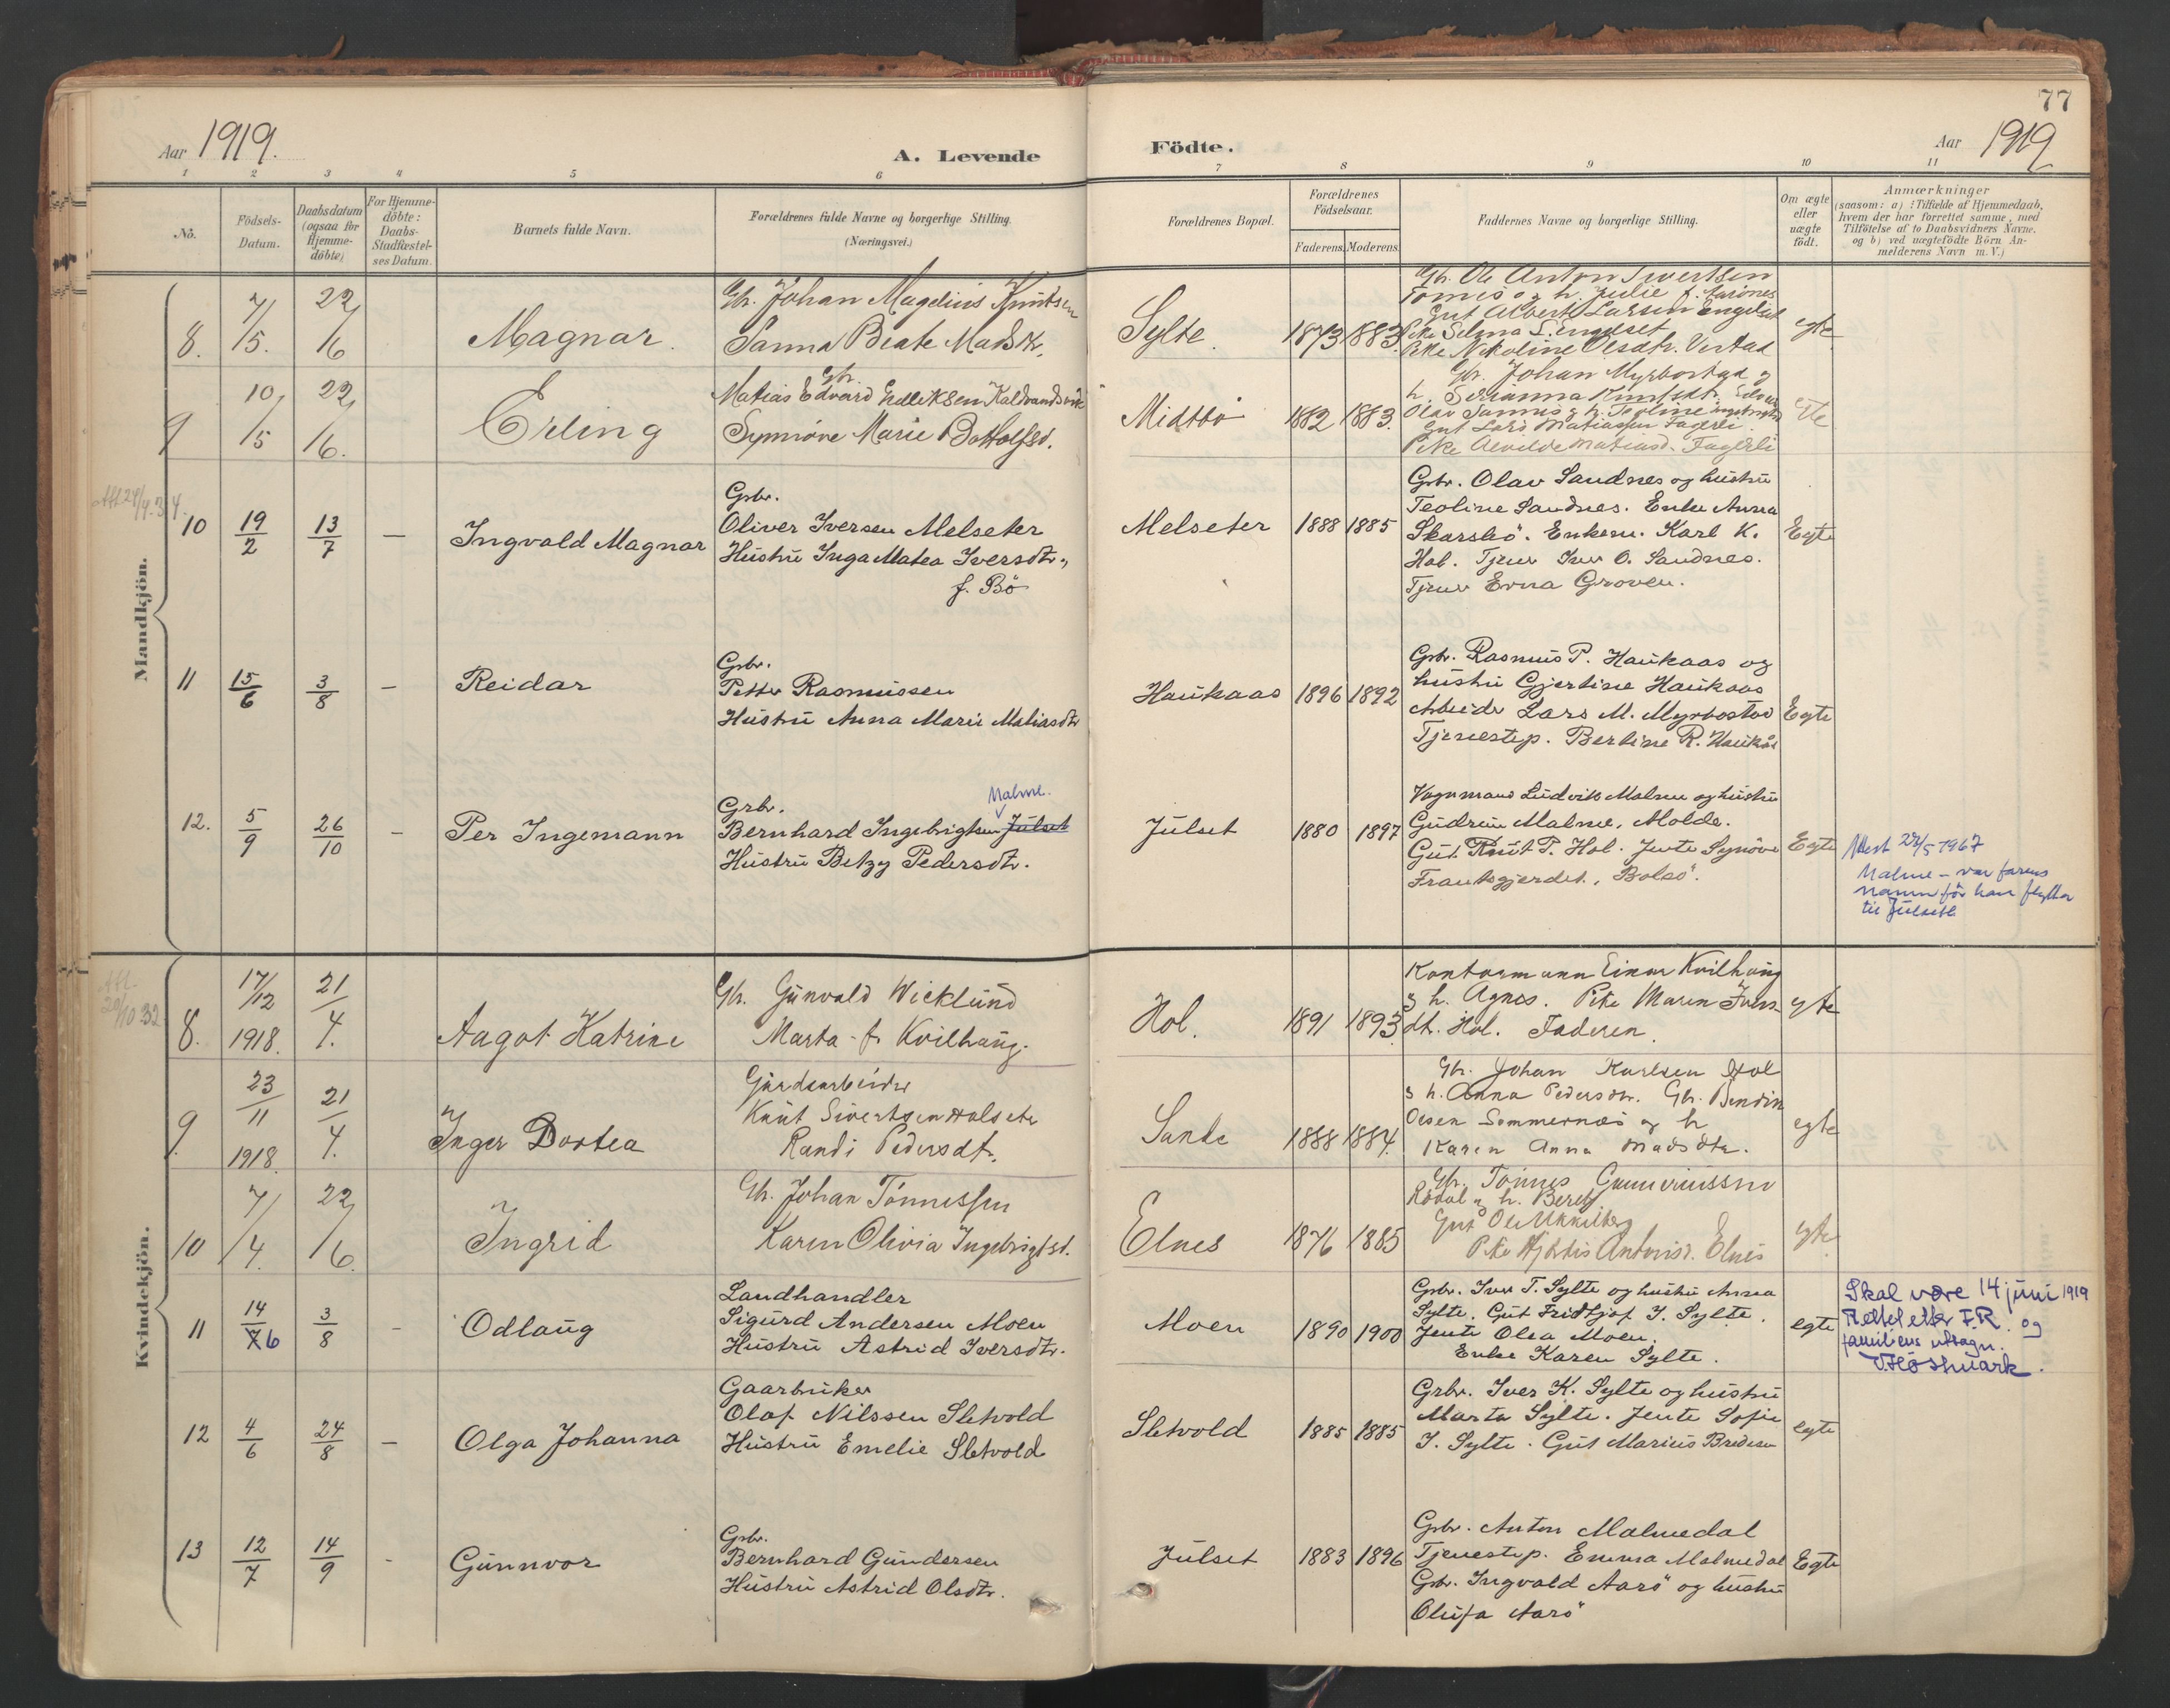 77
Aar 1919.
A. Levende Födte.
Aar 1919
1 2 3 4 5 6 7 8 9 10 11
No.
Födsels-
Datum.
Daabsdatum
(ogsaa for
Hjemme-
döbte)
For Hjemme-
döbte:
Daabs-
Stadfæstel-
ses Datum.
Barnets fulde Navn.
Forældrenes fulde Navne og borgerlige Stilling.
(Næringsvei.)
Forældrenes Bopæl.
Forældrenes
Födselsaar.
Faderens. Moderens.
Faddernes Navne og borgerlige Stilling.
Om ægte
eller
uægte
födt.
Anmærkninger
(saasom: a) i Tilfælde af Hjemmedaab,
hvem der har forrettet samme, med
Tilföielse af to Daabsvidners Navne.
og b) ved uægtefödte Börn An-
melderens Navn m. V.)
Mandkjön.
8. 7/5. 22/6 Magnar.
Gbr. Johan Magelius Knutsen
Sanna Beate Madsdtr.
Sylte. 1873 1883
Gbr. Ole Anton Sivertsen
Tornes og h. Julie
Gut Albert Larsen Engelset
Pike Selma L. Engelset
Pike Nikoline Olsdtr. Verstad
egte
9 10/5 22/6. Erling
Gbr.
Matias Edvard Endreksen Kaldvandsvik
Synnöve Marie Bottolfsd.
Midtbö 1882 1883.
Gbr. Johan Myrbostad og
h. Serianna Knutsdtr.
Olav Sannes og h. Teoline
Gut Lars Matiassen Fagerli.
Pike Alvilde Matiasd. Fagerli
egte
10 19/2 13/7 — Ingvald Magnar
Grbr.
Oliver Iversen Melseter
Hustru Inga Matea Iversdtr.,
f. Bö
Melseter 1888 1885
Grbr. Olav Sandnes og hustru
Teoline Sandnes. Enke Anna
Skarsbö. Enkem. Karl K.
Hol. Tjener Iver O. Sandnes.
Tjener Erna Groven.
Egte
11 15/6 3/8 — Reidar
Grbr.
Petter Rasmussen
Hustru Anna Marie Matiasdtr
Haukaas 1896 1892
Grbr. Rasmus P. Haukaas og
hustru Gjertine Haukaas
Arbeider Lars M. Myrbostad
Tjenestep. Bertine R. Haukås
Egte
12. 5/9 26/10 — Per Ingemann
Malme.
Grbr.
Bernhard Ingebrigtsen Julset
Hustru Betzy Pedersdtr.
Julset 1880 1897
Vognmand Ludvik Malme og hustru
Gudrun Malme, Molde.
Gut Knut P. Hol. Jente Synöve
Frantsgjerdet, Bolsö.
Egte
Attest 22/5 1967
Malme – var farens
namn för han flytta
til Julset
Kvindekjön.
8. 17/12 1918. 21/4. Aagot Katrine
Gbr. Gunvald Wicklund
Marta f. Kvilhaug.
Hol. 1891 1893
Kontormann Einar Kvilhaug
og h. Agnes. Pike Maren Ivers
dt. Hol. Faderen.
egte
9. 23/11 1918. 21/4. Inger Dortea
Gårdsarbeider
Knut Sivertsen Halseter
Randi Pedersdt.
Sande 1888 1884.
Gbr. Johan Karlsen Hol
og h. Anna Pedersdtr. Gbr. Bendin
Olsen Sommernæs og h
Karen Anna Madsdtr.
egte
10 7/4. 22/6. Ingrid
Gbr. Johan Tönnessen
Karen Olivia Ingebrigtsd.
Elnes 1876 1885
Gbr. Tönnes Gunneriussen
Rödal og h. Beret
Gut Ole
Pike Hjördis Antonisd. Elnes
egte
11 14/7 6 3/8 - Odlaug
Landhandler
Sigurd Andersen Moen
Hustru Astrid Iversdtr.
Moen 1890 1900
Grbr. Iver T. Sylte og hustru Anna
Sylte. Gut Fridtjof I. Sylte.
Jente Olea Moen.
Enke Karen Sylte.
egte
Skal være 14 juni 1919
Rettet etter F.R. og
familiens utsagn.
12 4/6 24/8 — Olga Johanna
Gaarbruker
Olaf Nilssen Sletvold
Hustru Emelie Sletvold
Sletvold 1885 1885
Grbr. Iver K. Sylte og hustru
Marta Sylte. Jente Sofie
I. Sylte. Gut Marius Bredesen
egte
13 12/7 14/9 - Gunnvor
Grbr.
Bernhard Gundersen
Hustru Astrid Olsdtr.
Julset 1883 1896
Grbr. Anton Malmedal
Tjenestep. Emma Malmedal
Grbr. Ingvald Aarö og hustru
Olufa Aarö
Egte